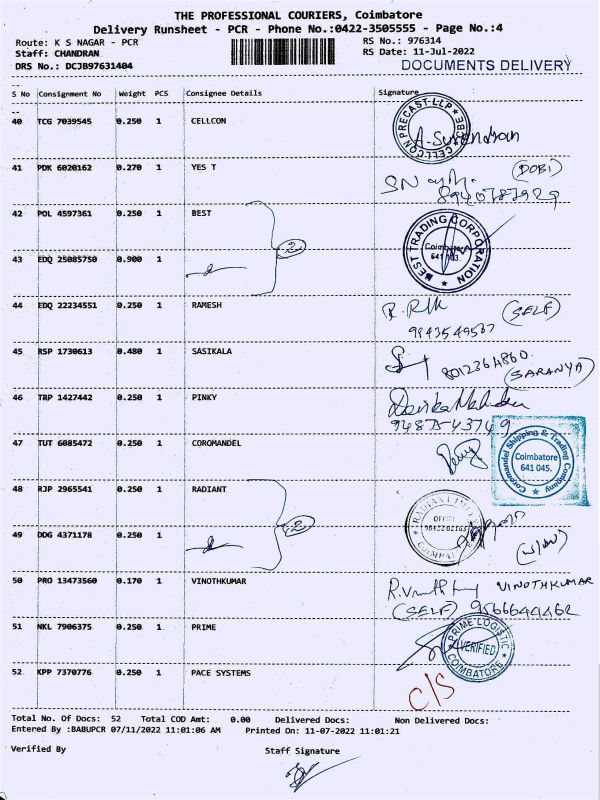 THE PROFESSIONAL COURIERS, Coimbatore
Delivery Runsheet - PCR - Phone No.:0422-3505555 - Page No.:4
Route: K S NAGAR - PCR RS No.: 976314
Staff: CHANDRAN RS Date: 11-Jul-2022
DRS No.: DCJB97631404 DOCUMENTS DELIVERY
S No Consignment No Weight PCS Consignee Details Signature
40 TCG 7039545 0.250 1 CELLCON
CELLCON PRECAST LLP
41 PDK 6020162 0.270 1 YES T (DOBI)
42 POL 4597361 0.250 1 BEST
2
BEST TRADING CORPORATION Coimbatore 641 103.
43 EDQ 25085750 0.900 1
44 EDQ 22234551 0.250 1 RAMESH (SELF)
9843549587
45 RSP 1730613 0.480 1 SASIKALA 8012364860.
(SARANYA)
46 TRP 1427442 0.250 1 PINKY
94875-43749
47 TUT 6085472 0.250 1 COROMANDEL
Coromandel Shipping & Trading Company Coimbatore 641 045.
48 RJP 2965541 0.250 1 RADIANT
2
49 DDG 4371178 0.250 1
50 PRO 13473560 0.170 1 VINOTHKUMAR VINOTHKUMAR
(SELF) 9566644462
51 NKL 7906375 0.250 1 PRIME
PRIME LOGISTIC VERIFIED COIMBATORE
52 KPP 7370776 0.250 1 PACE SYSTEMS C/S
Total No. Of Docs: 52 Total COD Amt: 0.00 Delivered Docs: Non Delivered Docs:
Entered By :BABUPCR 07/11/2022 11:01:06 AM Printed On: 11-07-2022 11:01:21
Verified By Staff Signature